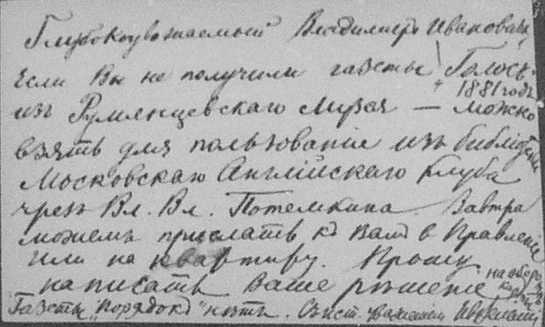 Глубокоуважаемый Владимиръ Ивановичъ
Если Вы не получили газеты "Голосъ"
1881 годъ
изъ Румянцевскаго Музея — можно
взять для пользованія изъ библіотеки
Московскаго Англійскаго Клуба
чрезъ Вл. Вл. Потемкина. Завтра
можемъ прислать къ Вамъ въ Правленіе
или на квартиру. Прошу
написать Ваше рѣшеніе на оборотѣ
Газеты "Порядокъ" нѣтъ. Съ ист. уваженіем